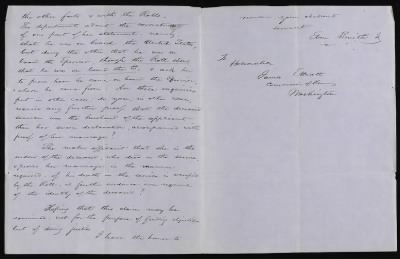 the other facts & with the Rolls.
The department admit the correctness
of one part of her statement, namely
that he was on board the United States,
but deny the other that he was on
board the Epervier though the Rolls show
that he was on board the & ask her
to prove how he came on board the Epervier
& where he came from. Are these inquiries
put in other cases, do you in other cases
require any further proof that the deceased
seaman was the husband of the applicant
than her own declaration accompanied with
proof of her marriage?
The maker affidavit that she is the
widow of the deceased, who died in the service,
proves her marriage in the manner
required, & his death in the service is verified
by the Roll, is further evidence ever required
of the identity of the deceased?
Hoping that this claim may be
examined, not for the purpose of finding objections
but of doing justice
I have the honor to
remain your obedient
servant
To
Honorable
James
Commissioner of Pensions
Washington